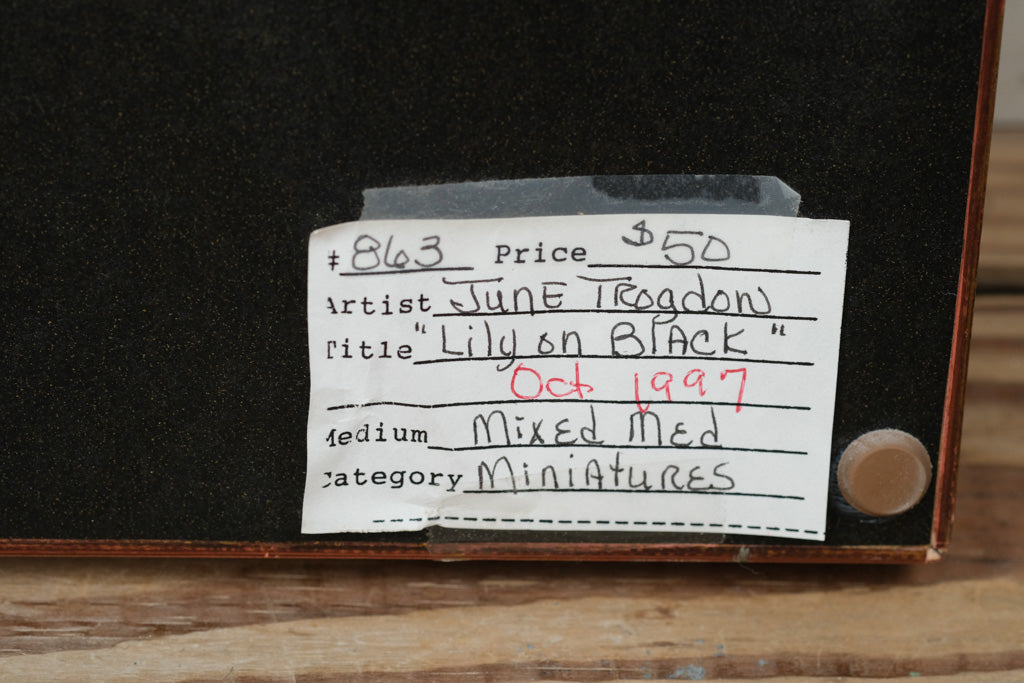 # 863 Price $50
Artist June Trogdon
Title "Lily on Black"
Oct 1997
Medium Mixed Med
Category Miniatures